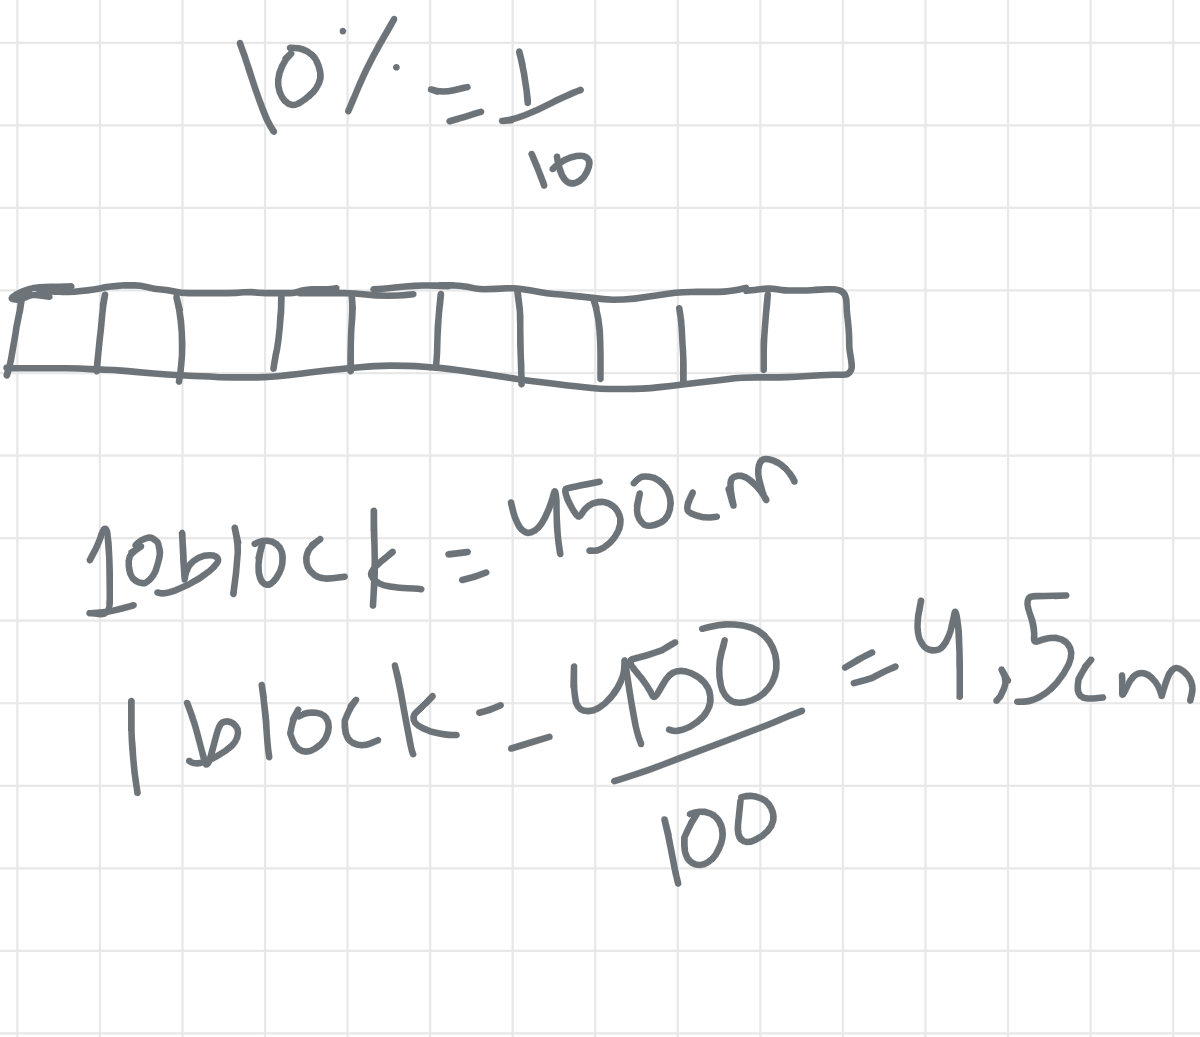 10% = 1/10
10block = 450cm
1 block = 450/100 = 4,5cm